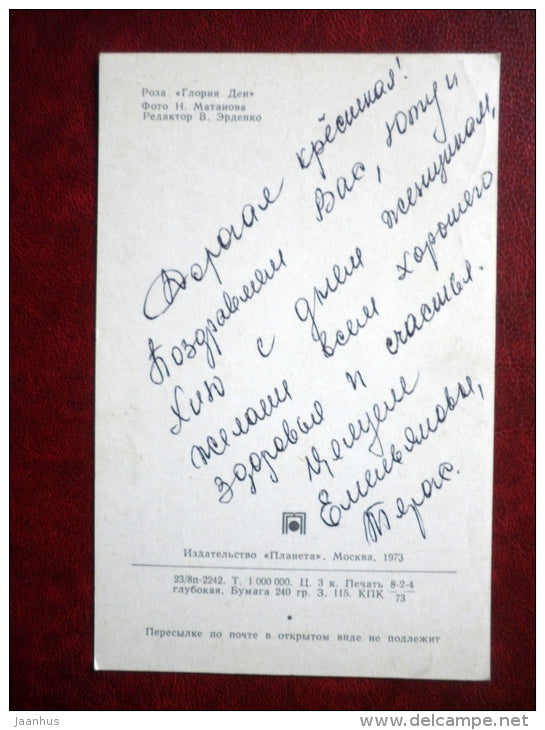 Роза «Глория Деи»
Фото Н. Матанова
Редактор В. Эрденко
Дорогая крёсиная!
Поздравляем Вас, Юту и
Хию с днем женщинам,
желаем всем хорошего
здоровья и счастья.
Целуем
Емельяновы,
Терас.
Издательство «Планета». Москва, 1973
23/8п-2242. Т. 1 000 000. Ц. 3 к. Печать 8-2-4
глубокая. Бумага 240 гр. З. 115. КПК 73
Пересылке по почте в открытом виде не подлежит
Jaanhus
www.delcampe.net